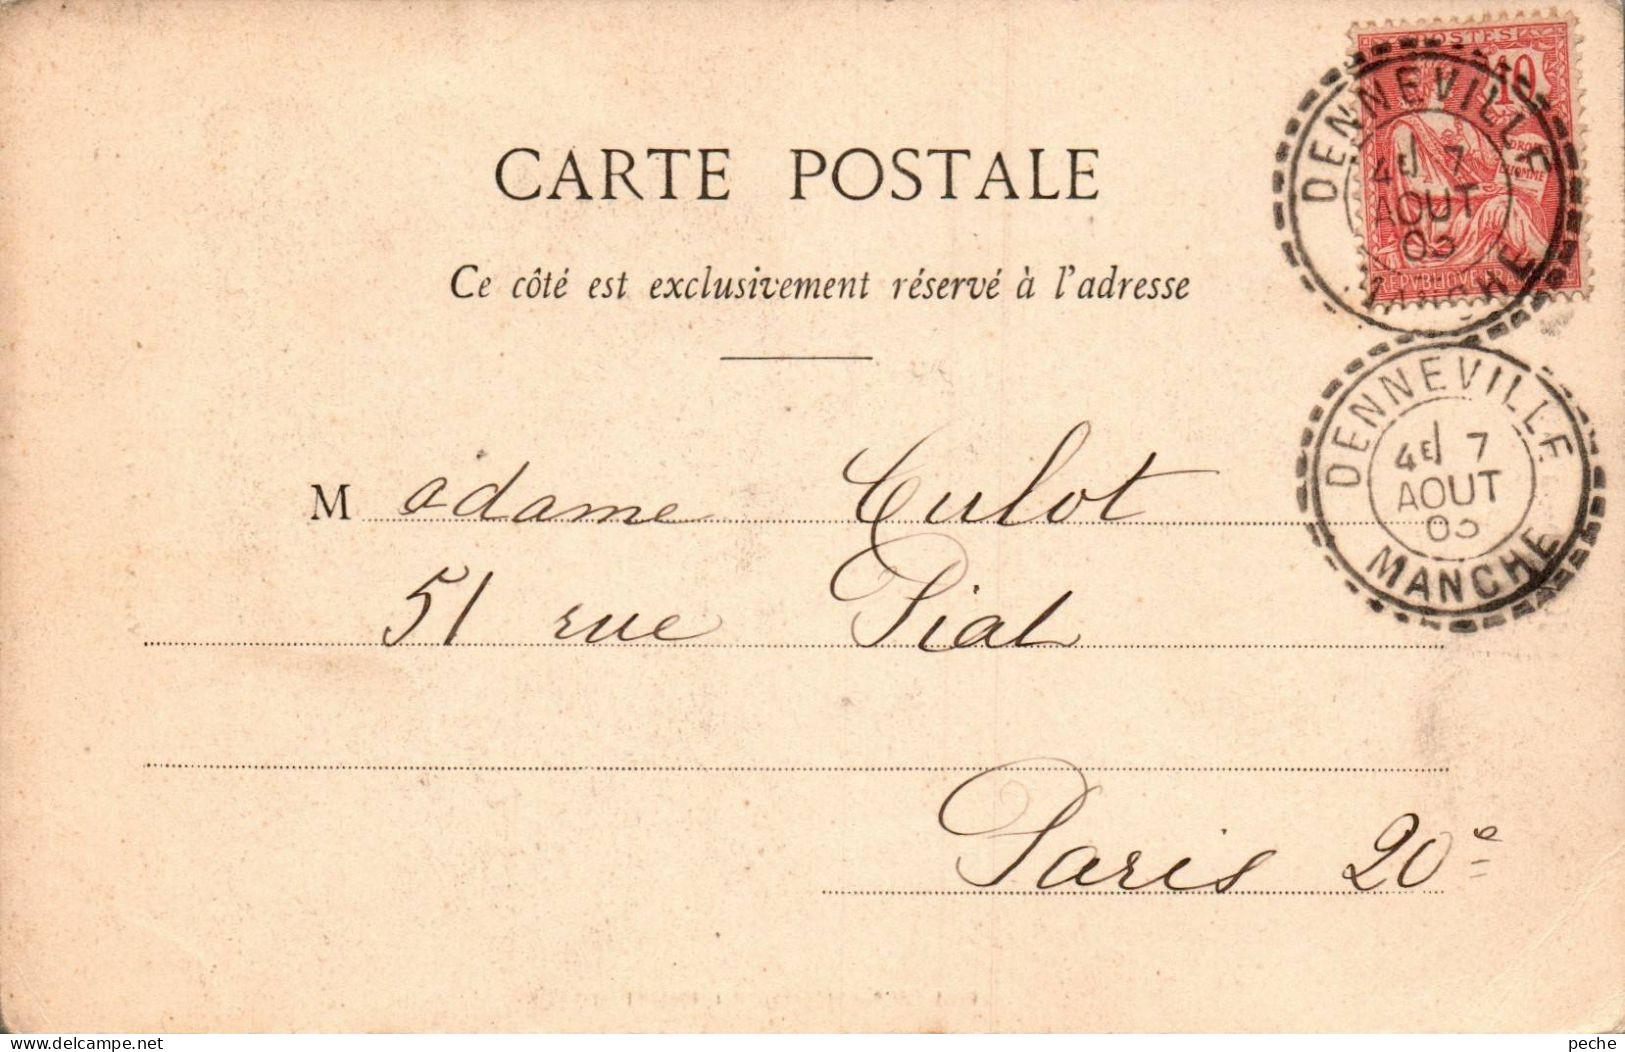 POSTES
10
DROITS DE L'HOMME
REPVBLIQVE FRA
DENNEVILLE
4E 7
AOUT
03
MANCHE
CARTE POSTALE
Ce côté est exclusivement réservé à l'adresse
DENNEVILLE
4E 7
AOUT
03
MANCHE
Madame Culot
51 rue Piat
Paris 20e
delcampe.net
peche